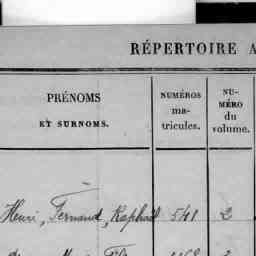 RÉPERTOIRE A
PRÉNOMS
ET SURNOMS.
NUMÉROS
ma-
tricules.
NU-
MÉRO
du
volume.
Henri, Fernand, Raphaël 541 2